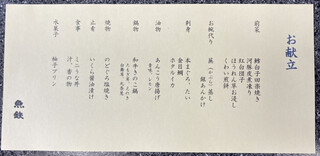 お献立
前菜
鱈白子田楽焼き
河豚皮煮凍り
紅白団子
ほうれん草お浸し
くわい煎餅
お椀代り
蕪(かぶら)蒸し
銀あんかけ
刺身
本まぐろ、たい
金目鯛
ホタルイカ
油物
あんこう唐揚げ
レモン
鍋物
和牛きのこ鍋
焼物
のどぐろ塩焼き
止肴
いくら醤油漬け
食事
ミニうな丼
汁、香の物
水菓子
柚子プリン